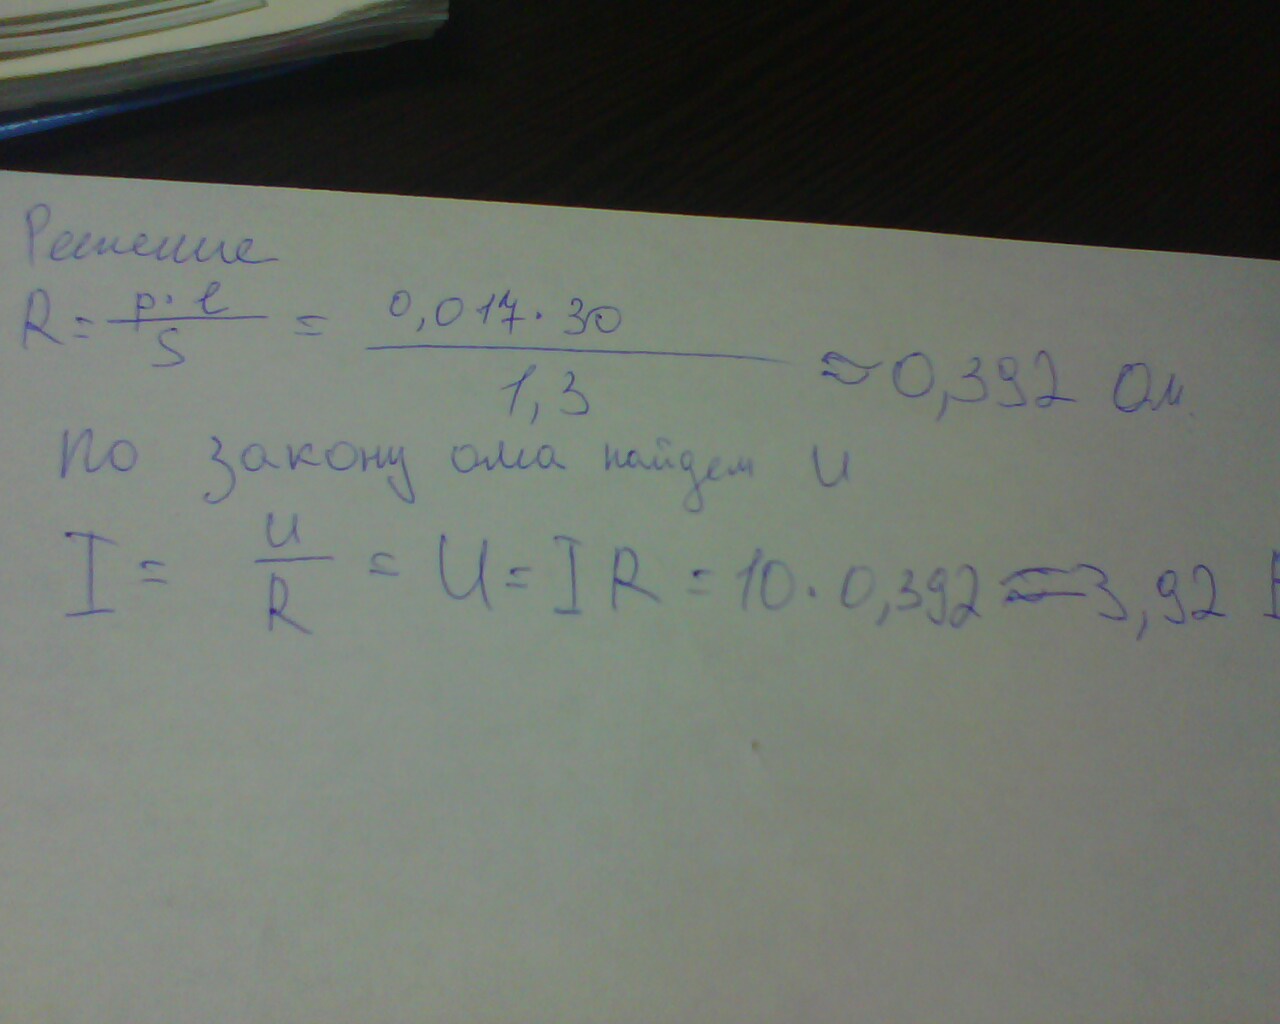 Решение
R = p·l / S = 0,017·30 / 1,3 ≈ 0,392 Ом.
по закону ома найдем U
I = U / R = U = I R = 10·0,392 ≈ 3,92 В